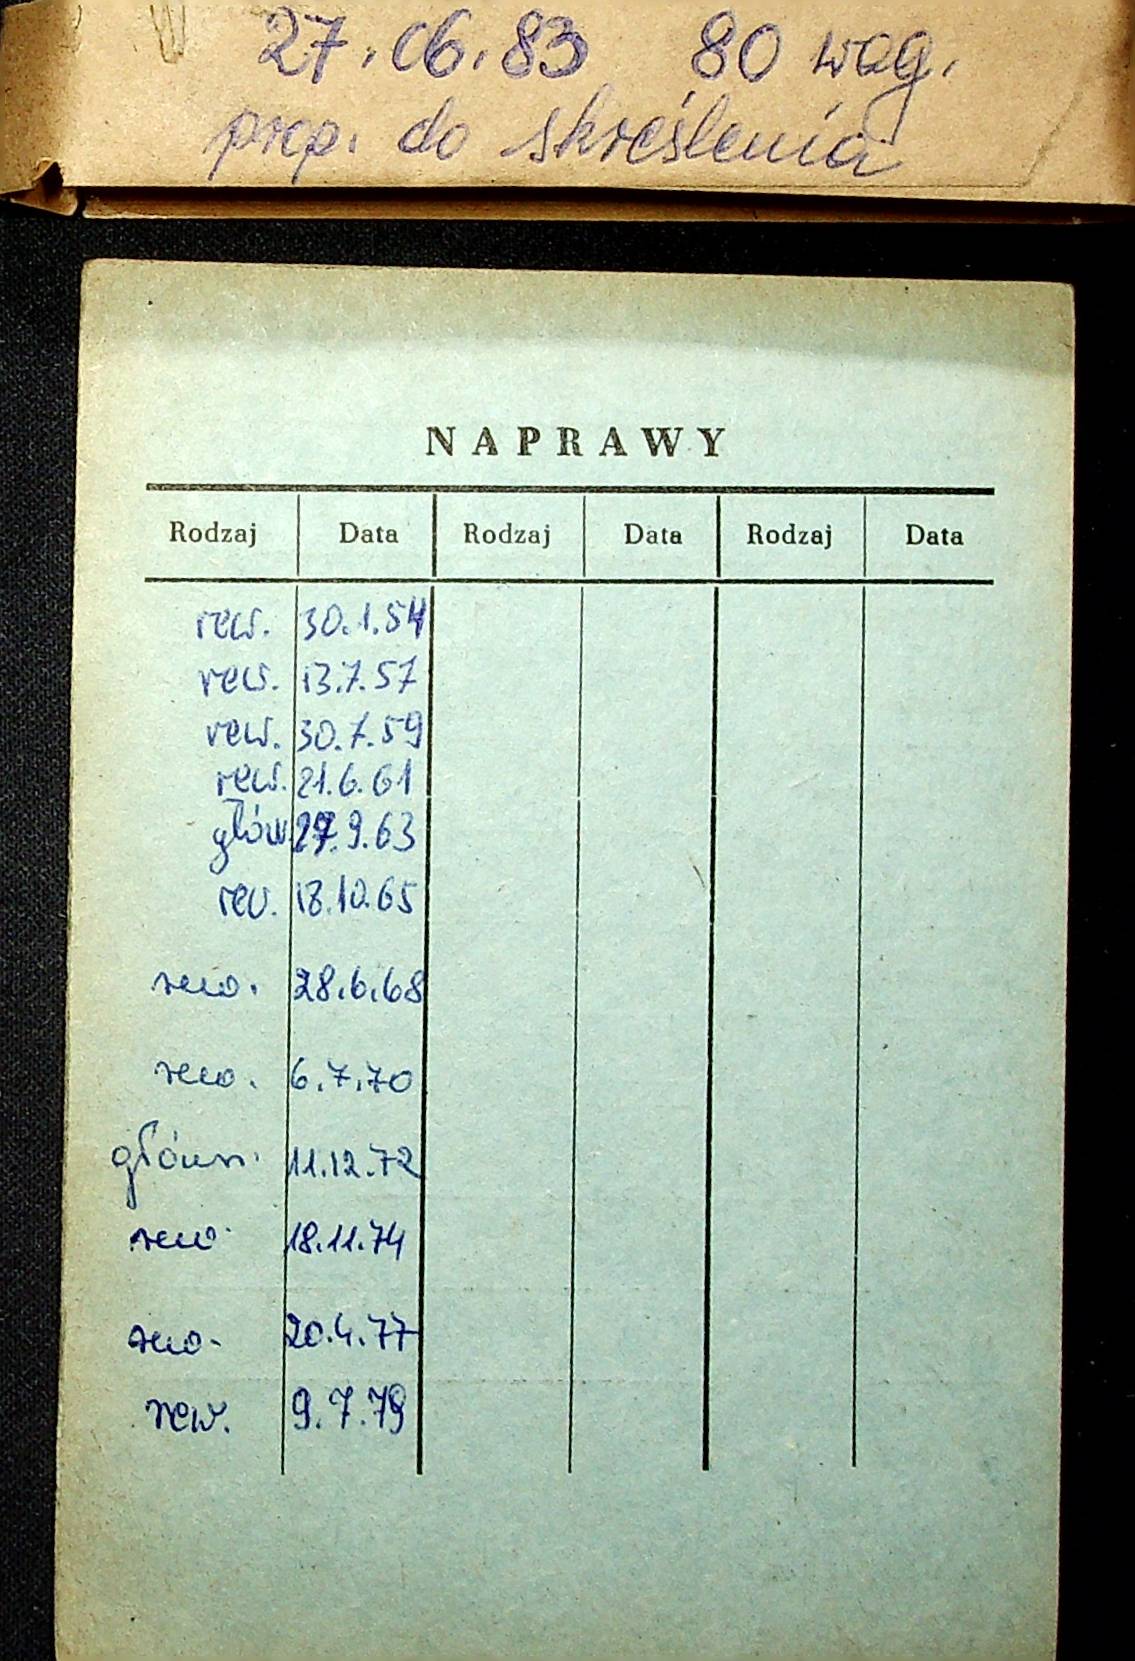 27.06.83 80 wag.
prop. do skreślenia
NAPRAWY
Rodzaj Data Rodzaj Data Rodzaj Data
rew. 30.1.54
rew. 13.7.57
rew. 30.7.59
rew. 21.6.61
główn 9.63
rew. 18.10.65
rew. 28.6.68
rew. 6.7.70
główn. 11.12.72
rew. 18.11.74
rew. 20.4.77
rew. 9.7.79